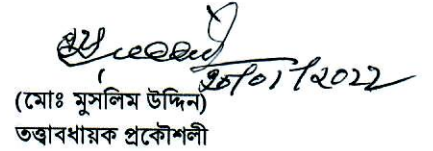 ২০/০১/২০২২
(মোঃ মুসলিম উদ্দিন)
তত্ত্বাবধায়ক প্রকৌশলী